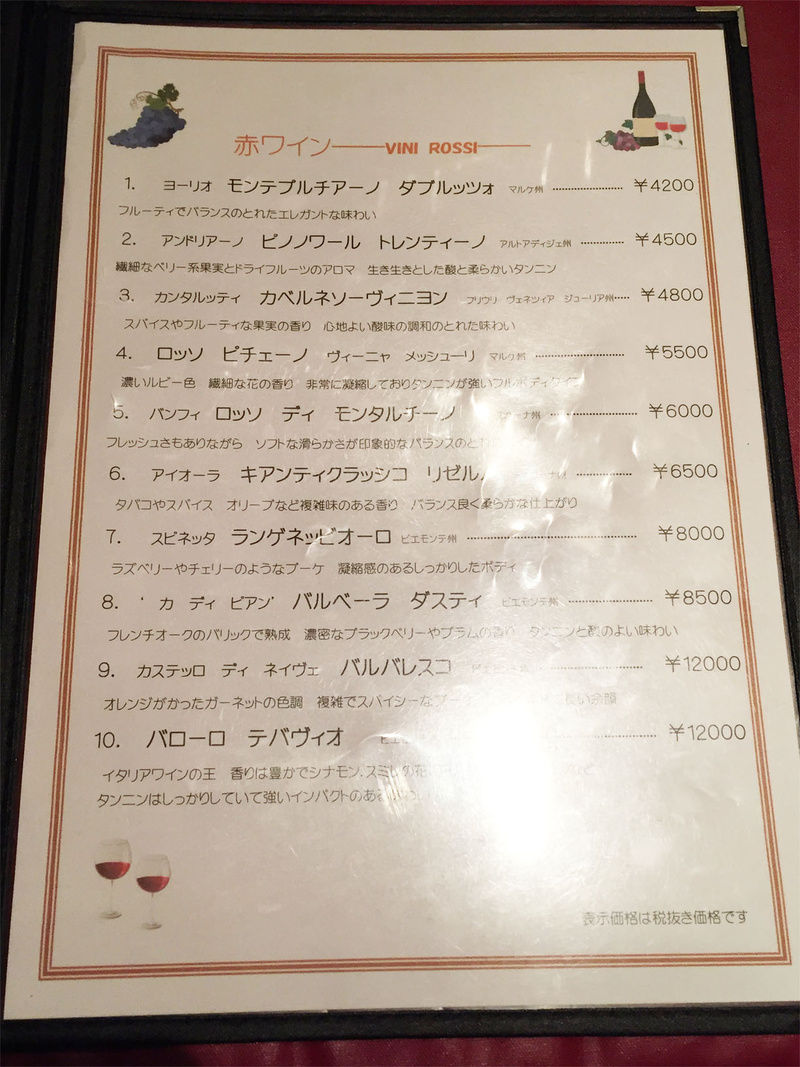 赤ワイン――VINI ROSSI――
1. ヨーリオ モンテプルチアーノ ダブルッツォ マルケ州 ¥4200
フルーティでバランスのとれたエレガントな味わい
2. アンドリアーノ ピノノワール トレンティーノ アルトアディジェ州 ¥4500
繊細なベリー系果実とドライフルーツのアロマ 生き生きとした酸と柔らかいタンニン
3. カンタルッティ カベルネソーヴィニヨン フリウリ ヴェネツィア ジューリア州 ¥4800
スパイスやフルーティな果実の香り 心地よい酸味の調和のとれた味わい
4. ロッソ ピチェーノ ヴィーニャ メッシューリ マルケ州 ¥5500
濃いルビー色 繊細な花の香り 非常に凝縮しておりタンニンが強いフルボディワイン
5. バンフィ ロッソ ディ モンタルチーノ ¥6000
フレッシュさもありながら ソフトな滑らかさが印象的なバランスのとれ
6. アイオーラ キアンティクラッシコ リゼル ¥6500
タバコやスパイス オリーブなど複雑味のある香り バランス良く柔らかな仕上がり
7. スピネッタ ランゲネッビオーロ ピエモンテ州 ¥8000
ラズベリーやチェリーのようなブーケ 凝縮感のあるしっかりしたボディ
8. ' カ ディ ピアン' バルベーラ ダスティ ピエモンテ州 ¥8500
フレンチオークのバリックで熟成 濃密なブラックベリーやプラムの香り タンニンと酸のよい味わい
9. カステッロ ディ ネイヴェ バルバレスコ ¥12000
オレンジがかったガーネットの色調 複雑でスパイシーなブー 長い余韻
10. バローロ テバヴィオ ¥12000
イタリアワインの王 香りは豊かでシナモン、スミレの花
タンニンはしっかりしていて強いインパクトのある
表示価格は税抜き価格です